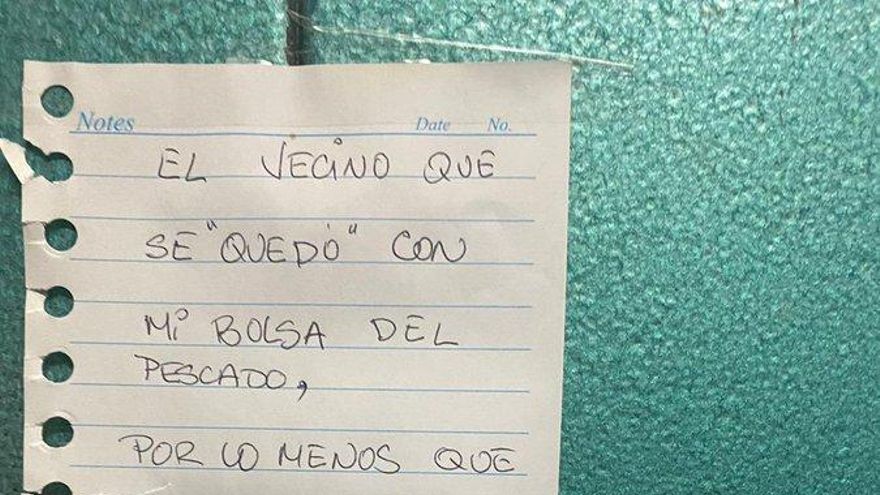 Notes Date No.
EL VECINO QUE
SE "QUEDÓ" CON
Mi BOLSA DEL
PESCADO,
POR LO MENOS QUE